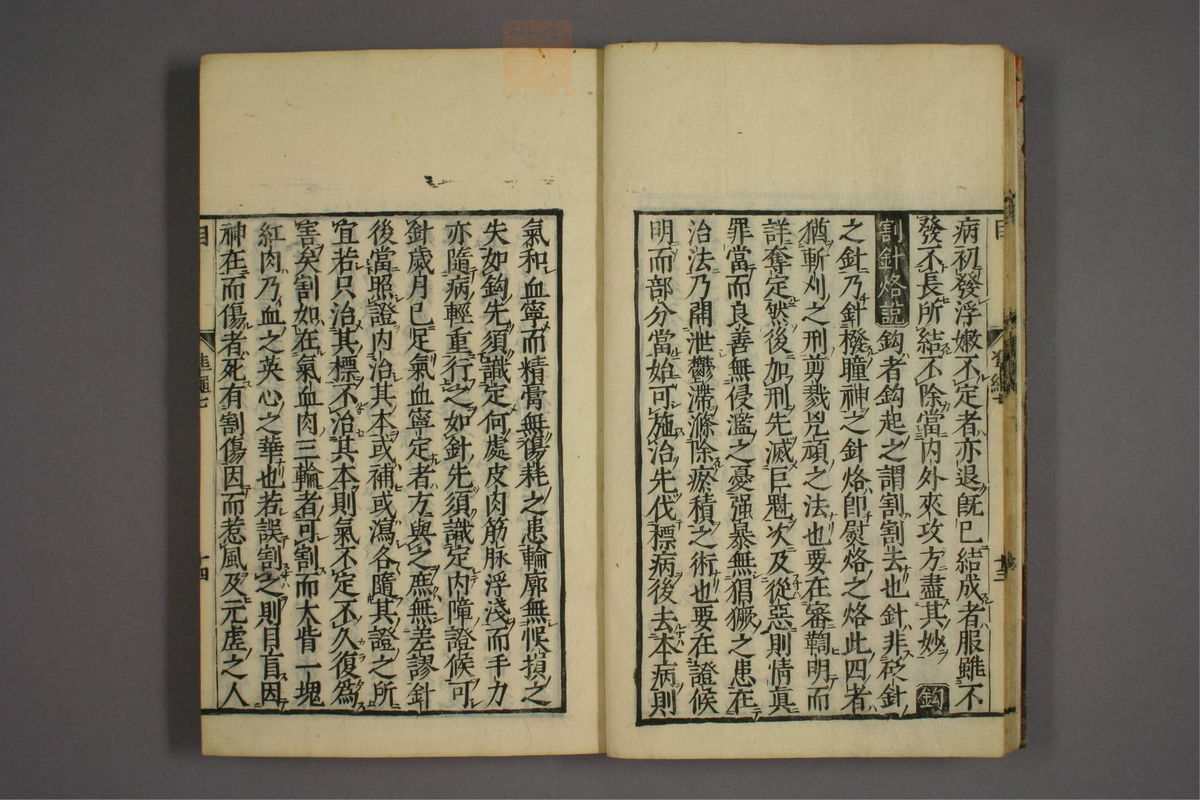 病初發浮嫩不定者亦退既已結成者服雖不
發不長所結不除當內外夾攻方盡其妙 鈎
割針烙說 鈎者鈎起之謂割割去也針非砭針
之針乃針撥瞳神之針烙卽熨烙之烙此四者
猶斬刈之刑剪戮兇頑之法也要在審鞫明而
詳奪定然後加刑先滅巨魁次及從惡則情真
罪當而良善無侵濫之憂强暴無猖獗之患在
治法乃開泄鬱滯滌除瘀積之術也要在證候
明而部分當始可施治先伐標病後去本病則
氣和血寧而精膏無傷耗之患輪廓無悞損之
失如鈎先須識定何處皮肉筋脉浮淺而手力
亦隨病輕重行之如針先須識定內障證候可
針歲月已足氣血寧定者方與之庶無差謬針
後當照證內治其本或補或瀉各隨其證之所
宜若只治其標不治其本則氣不定不久復爲
害矣割如在氣血肉三輪者可割而大眥一塊
紅肉乃血之英心之華也若誤割之則目盲因
神在而傷者死有割傷因而惹風及元虛之人
十四